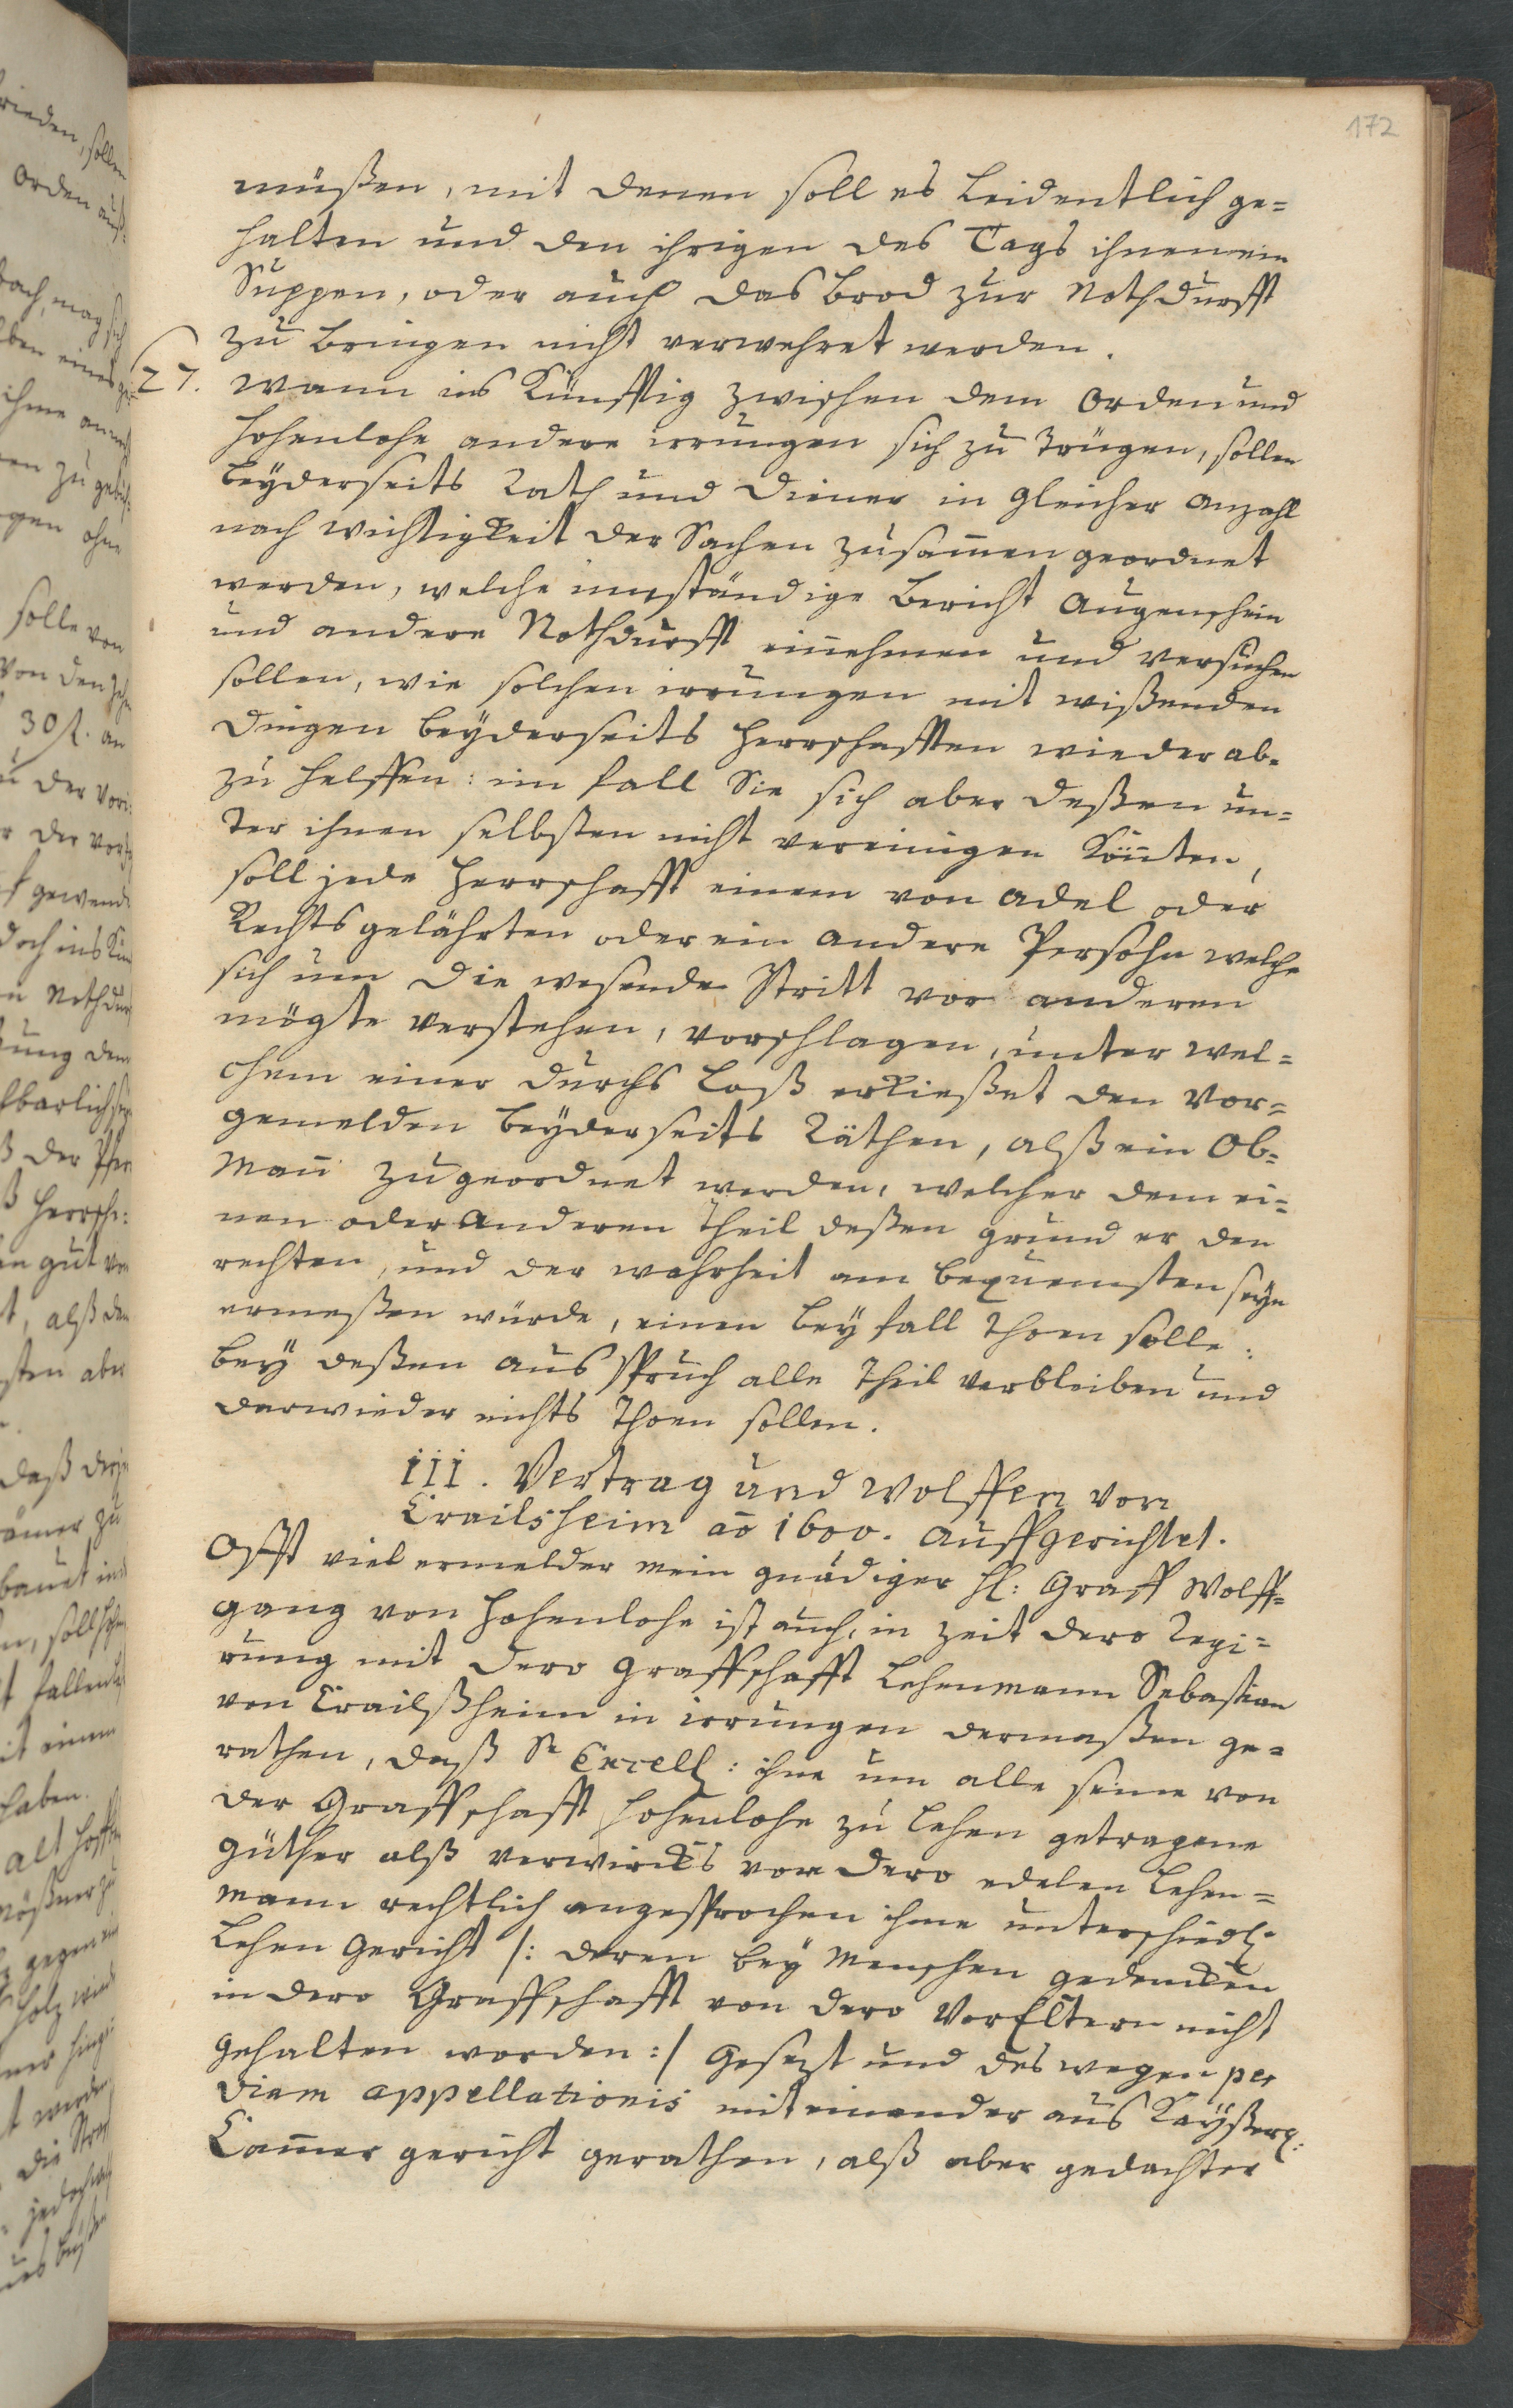 172
müßen, mit denen soll es leidentlich ge=
halten und den ihrigen des Tags ihnen ein
Suppen, oder auch das Brod zur Nothdurfft
zu bringen nicht verwehret werden.
27. Wann ins Künfftig zwischen dem Orden und
Hohenlohe andere irrungen sich zu trügen, sollen
beyderseits Rath und Diener in gleicher Anzahl
nach wichtigkeit der Sachen zusam̅en geordnet
werden, welche umständige Bericht Augenschein
und andere Nothdurfft ein̅ehmen und versuchen
sollen, wie solchen irrungen mit wißenden
Dingen beyderseits Herrschafften wieder ab=
zu helffen: im fall Sie sich aber deßen un=
ter ihnen selbsten nicht vereinigen kön̅ten,
soll jede Herrschafft einem von Adel oder
Rechtsgelährten oder ein andere Persohn welche
sich um die wesende Stritt vor anderen
mögte verstehen, vorschlagen, unter wel=
chem einer durchs Loß erkießet den vor=
gemelden beyderseits Räthen, alß ein Ob=
man̅ zugeordnet werden, welcher dem ei=
nen oder anderen Theil deßen grund er den
rechten, und der wahrheit am bequemsten seyn
ermeßen würde, einen beyfall thoen solle:
bey deßen ausspruch alle Theil verbleiben und
darwieder nichts thoen sollen.
III. Vertrag und Wolffen von
Crailsheim ao 1600. auffgerichtet.
Offt viel ermelder mein gnädiger H: Graff Wolff=
gang von Hohenlohe ist auch, in zeit dero Regi=
rung mit dero Graffschafft Lehenmann Sebastian
von Crailßheim in irrungen dermaßen ge=
rathen, daß Sr Excell: ihne um alle seine von
der Graffschafft Hohenlohe zu Lehen getragene
güther alß verwirckts von dero edelen Lehen=
mann rechtlich angesprochen ihme unterschiedl:
Lehen Gericht /: deren bey Menschen gedencken
in dero Graffschafft von dero VorEltern nicht
gehalten worden :/ gesezt und deswegen per
viam appellationis miteinander ans Kayßerl:
Cam̅er gericht gerathen, alß aber gedachter